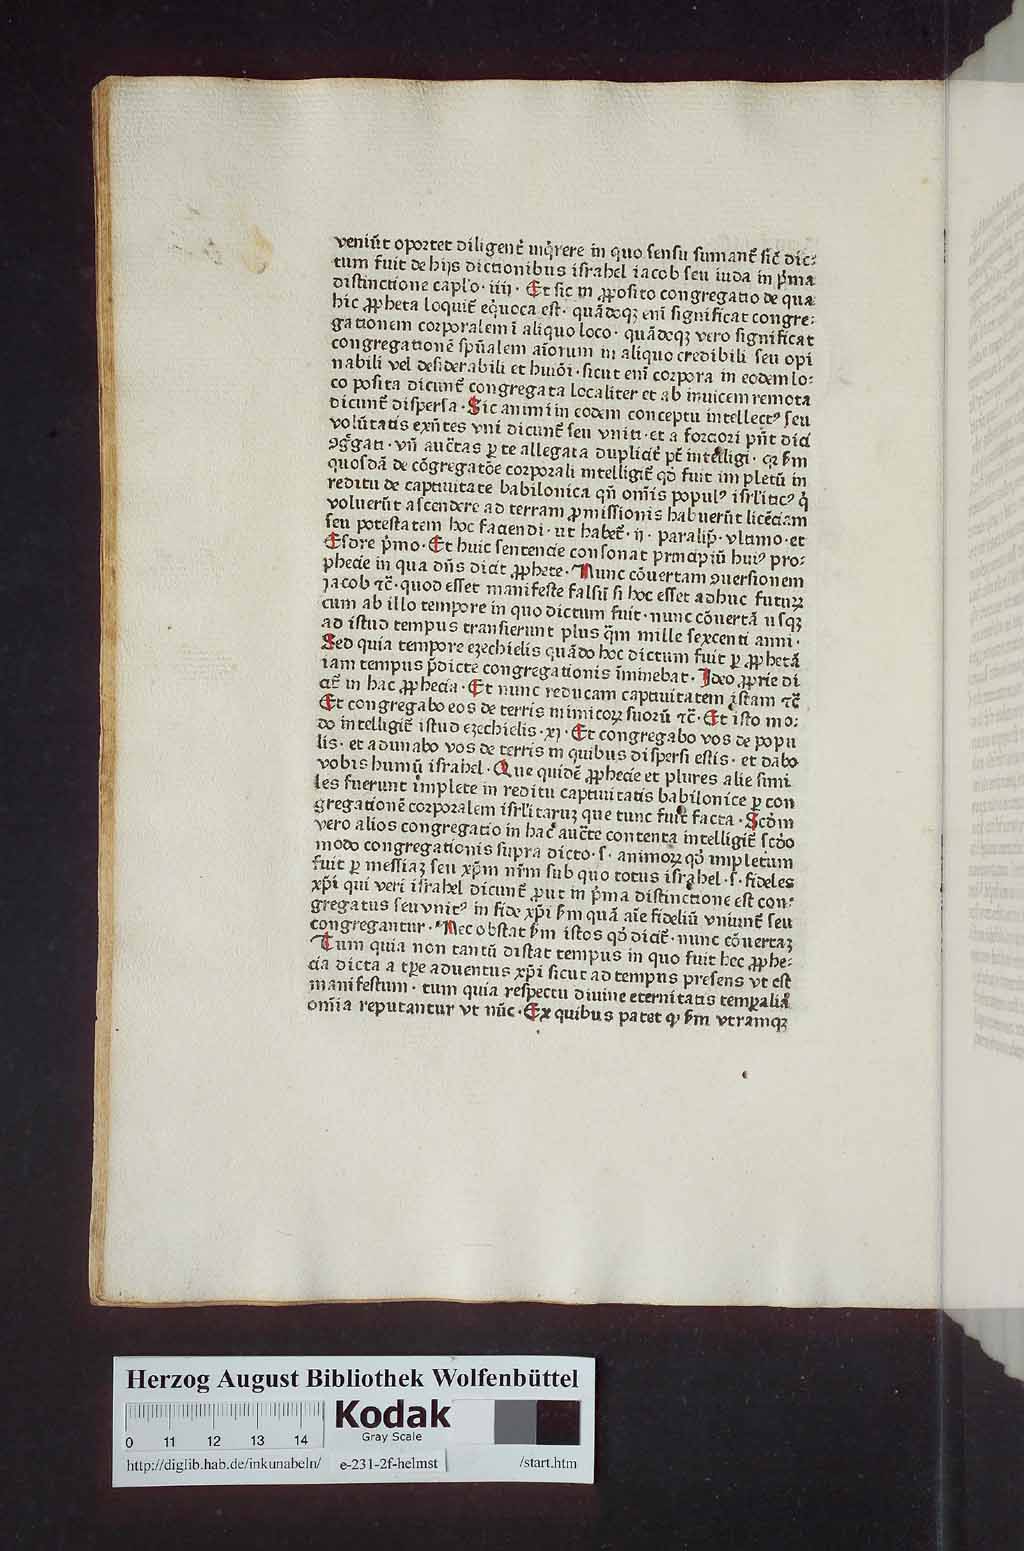 veniūt oportet diligent᷑ inq̊rere in quo sensu sumant᷑ sic̄ dic⸗
tum fuit de hijs dictionibus israhel iacob seu iuda in p̊ma
distinctione capl'o · iiij · Et sic in ꝓposito congregatio de qua
hic ꝓpheta loquit᷑ eq̊uoca est · quādoqꝫ eni᷑ significat congre⸗
gationem corporalem ī aliquo loco · quādoqꝫ vero significat
congregationē spūalem aīorum in aliquo credibili seu opi
nabili vel desiderabili et huiōi · sicut eni᷑ corpora in eodem lo⸗
co posita dicunt᷑ congregata localiter et ab inuicem remota
dicunt᷑ dispersa · Sic animi in eodem conceptu intellectꝰ seu
volūtatis exn̄tes vni dicunt᷑ seu vniti · et a forciori pn̄t dici
ꝯg̊gati · vn̄ auc̄tas ꝑ te allegata duplicit᷑ pt᷑ intelligi · qꝛ ẜm
quosdā de cōgregatōe corporali intelligit᷑ qḋ fuit impletū in
reditu de captiuitate babilonica qn̄ om̄is populꝰ isrl'iticꝰ q̊
voluerūt ascendere ad terram ꝓmissionis habuerūt licēciam
seu potestatem hoc faciendi · ut habet᷑ · ij · paralip̄ · vltimo · et
Esdre p̊mo · Et huic sentencie consonat principiū huiꝰ pro⸗
phecie in qua dn̄s dicit ꝓphete · Nunc cōuertam ꝯuersionem
iacob ⁊c̄ · quod esset manifeste falsū si hoc esset adhuc futuꝝ
cum ab illo tempore in quo dictum fuit · nunc cōuertā usqꝫ
ad istud tempus transierunt plus q̄m mille sexcenti anni ·
Sed quia tempore ezechielis quādo hoc dictum fuit ꝑ ꝓphetā
iam tempus p̄dicte congregationis īminebat · Ideo ꝓprie di
cit᷑ in hac ꝓphecia · Et nunc reducam captiuitatem istam ⁊c̄
Et congregabo eos de terris inimicoꝝ suorū ⁊c̄ · Et isto mo⸗
do intelligit᷑ istud ezechielis · xj · Et congregabo vos de popu
lis · et adunabo vos de terris in quibus dispersi estis · et dabo
vobis humū israhel · Que quidē ꝓphecie et plures alie simi
les fuerunt implete in reditu captiuitatis babilonice ꝑ con
gregationē corporalem isrl'itaruꝫ que tunc fuit facta · Scḋm
vero alios congregatio in hac auc̄te contenta intelligit᷑ scḋo
modo congregationis supra dicto · s · animoꝝ qḋ impletum
fuit ꝑ messiaꝫ seu xp̄m nr̄m sub quo totus israhel · s · fideles
xp̄i qui veri israhel dicunt᷑ ꝓut in p̊ma distinctione est con⸗
gregatus seu vnitꝰ in fide xp̄i ẜm quā aīe fideliū vniunt᷑ seu
congregantur · Nec obstat ẜm istos qḋ dicit᷑ · nunc cōuertaꝫ
Tum quia non tantū distat tempus in quo fuit hec ꝓphe⸗
cia dicta a tꝑe aduentus xp̄i sicut ad tempus presens vt est
manifestum · tum quia respectu diuine eternitatis temꝑalia
om̄ia reputantur vt nūc · Ex quibus patet ꝙ ẜm vtramqꝫ
Herzog August Bibliothek Wolfenbüttel
0 11 12 13 14
Kodak
Gray Scale
http://diglib.hab.de/inkunabeln/ e-231-2f-helmst /start.htm